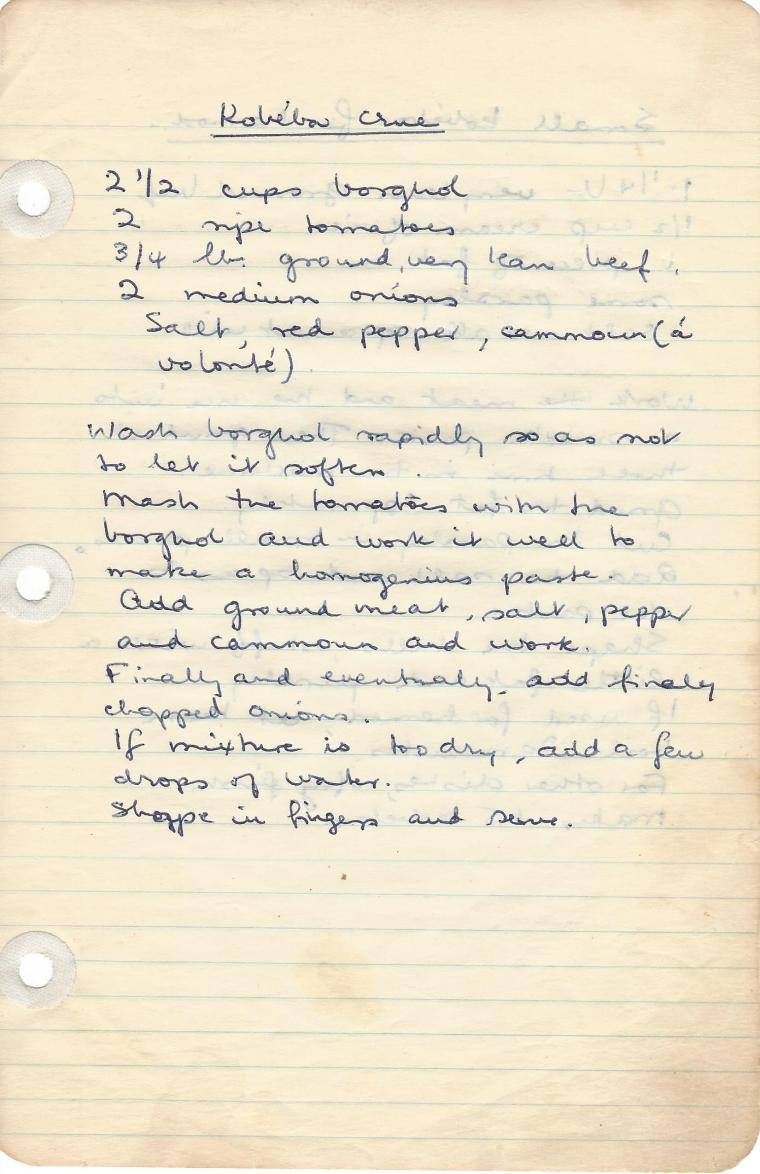 Kobéba crue
2 1/2 cups borghol
2 ripe tomatoes
3/4 lb. ground, very lean beef.
2 medium onions
Salt, red pepper, cammoun (á
volonté)
Wash borghol rapidly so as not
to let it soften.
Mash the tomatoes with the
borghol and work it well to
make a homogenius paste.
Add ground meat, salt, pepper
and cammoun and work.
Finally and eventually, add finely
chopped onions.
If mixture is too dry, add a few
drops of water.
Shappe in fingers and serve.